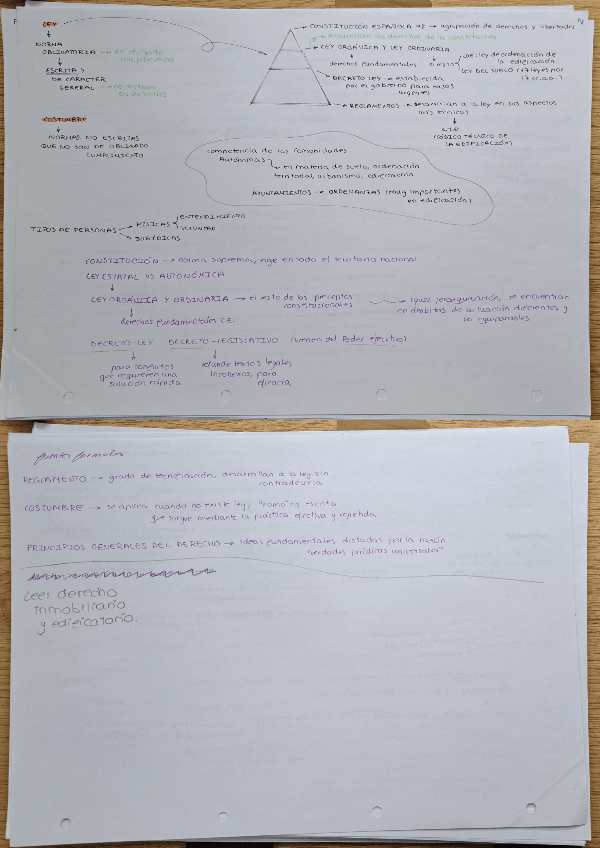 LEY
NORMA
OBLIGATORIA → es de obligado
cumplimiento
ESCRITA Y
DE CARÁCTER
GENERAL → no entran
en detalles
COSTUMBRE
NORMAS NO ESCRITAS
QUE NO SON DE OBLIGADO
CUMPLIMIENTO
→ CONSTITUCIÓN ESPAÑOLA 78 → agrupación de derechos y libertades
desarrollan los derechos de la constitución
→ LEY ORGÁNICA Y LEY ORDINARIA
derechos fundamentales
el resto
LOE: ley de ordenación de
la edificación
LEY DEL SUELO (17 leyes por
17 cc.aa.)
→ DECRETO LEY → establecido
por el gobierno para casos
urgentes
→ REGLAMENTOS → desarrollan a la ley en sus aspectos
más técnicos
C.T.E.
(CÓDIGO TÉCNICO DE
LA EDIFICACIÓN)
competencia de las Comunidades
Autónomas
→ en materia de suelo, ordenación
territorial, urbanismo, edificación
AYUNTAMIENTOS → ORDENANZAS (muy importantes
en edificación)
TIPOS DE PERSONAS
FÍSICAS
ENTENDIMIENTO
VOLUNTAD
JURÍDICAS
CONSTITUCIÓN → norma suprema, rige en todo el territorio nacional
LEY ESTATAL VS AUTONÓMICA
LEY ORGÁNICA Y ORDINARIA → el resto de los preceptos
constitucionales
igual jerarquización, se encuentran
en ámbitos de actuación diferentes y
no equiparables
derechos fundamentales C.E.
DECRETO-LEY DECRETO-LEGISLATIVO (vienen del Poder ejecutivo)
para conflictos
que requieren una
solución rápida
refunde textos legales
inconexos, para
eficacia
fuentes formales
REGLAMENTO → grado de tecnificación, desarrollan a la ley sin
contradecirla
COSTUMBRE → se aplica cuando no existe ley, "como" no escrita
que surge mediante la práctica efectiva y repetida
PRINCIPIOS GENERALES DEL DERECHO → ideas fundamentales dictadas por la razón
"verdades jurídicas universales"
Leer derecho
inmobiliario
y edificatorio.